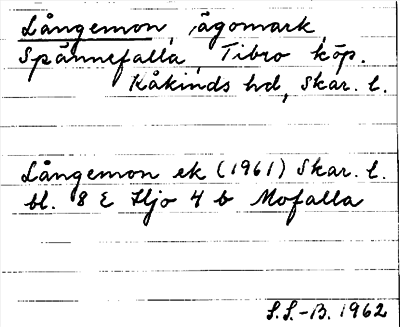 Långemon, ägomark,
Spännefalla, Tibro köp.
Kåkinds hd, Skar. l.
Långemon ek (1961) Skar. l.
bl. 8 E Hjo 4 b Mofalla
S.S.-B. 1962